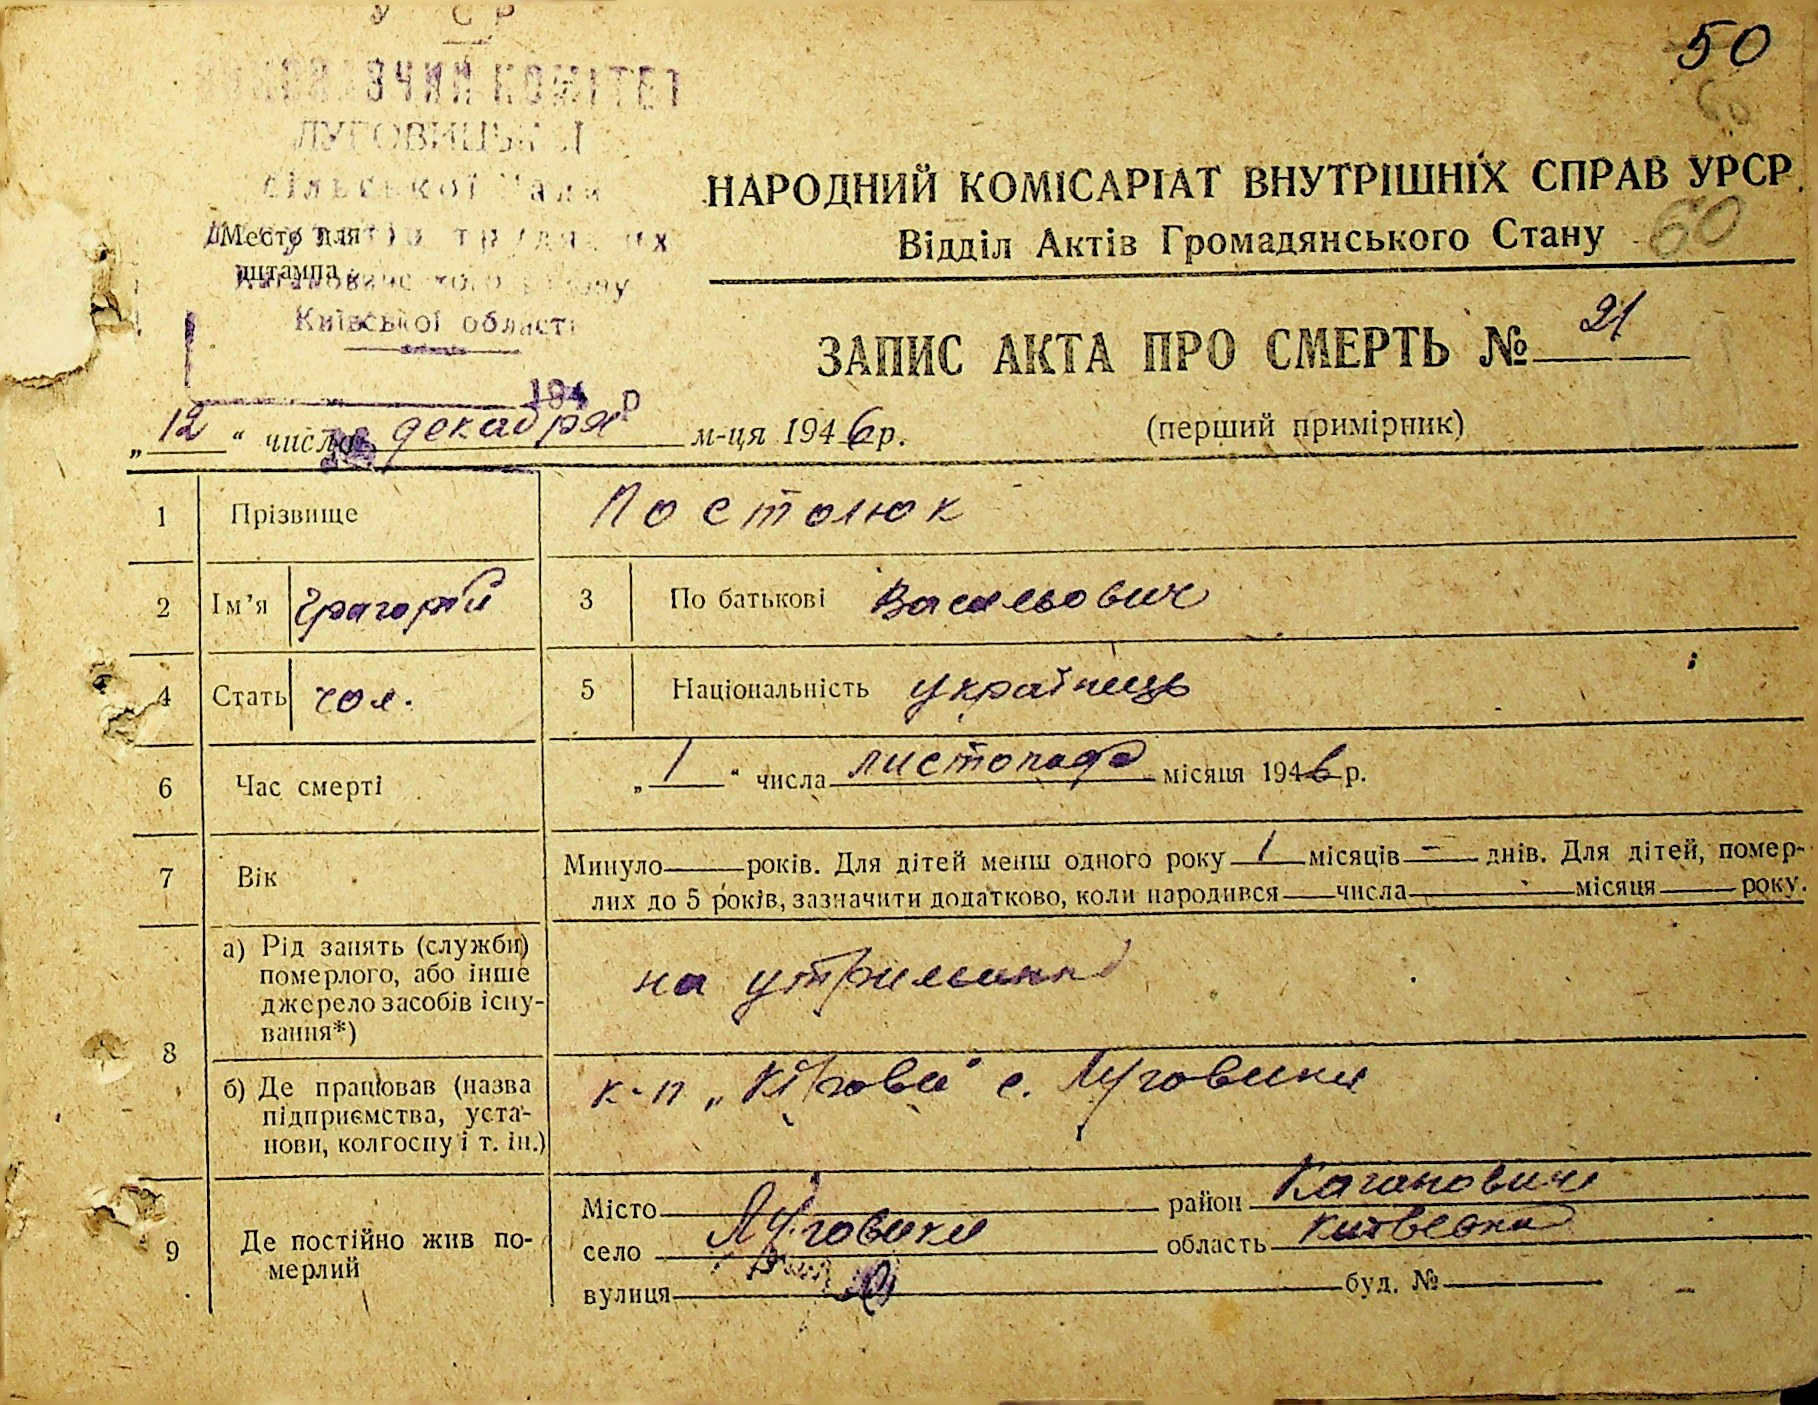 У С Р
ВИКОНАВЧИЙ КОМІТЕТ
ЛУГОВИЦЬКОЇ
сільської Ради
трудящих
Место для
штампа
Київської області
194 р
50
60
60
НАРОДНИЙ КОМІСАРІАТ ВНУТРІШНІХ СПРАВ УРСР.
Відділ Актів Громадянського Стану
ЗАПИС АКТА ПРО СМЕРТЬ № 21
„12“ числа декабря м-ця 1946 р. (перший примірник)
1 Прізвище Постолюк
2 Ім’я Грагорій 3 По батькові Васильович
4 Стать чол. 5 Національність українець
6 Час смерті „1“ числа листопада місяця 1946 р.
7 Вік Минуло — років. Для дітей менш одного року 1 місяців — днів. Для дітей, помер-
лих до 5 років, зазначити додатково, коли народився — числа — місяця — року.
8 а) Рід занять (служби) померлого, або інше джерело засобів існу-вання*) на утриманні
б) Де працював (назва підприємства, уста-нови, колгоспу і т. ін.) к-п „Кірова“ с. Луговики
9 Де постійно жив по-мерлий
Місто район Кагановичі
село Луговики область Київська
вулиця буд. №